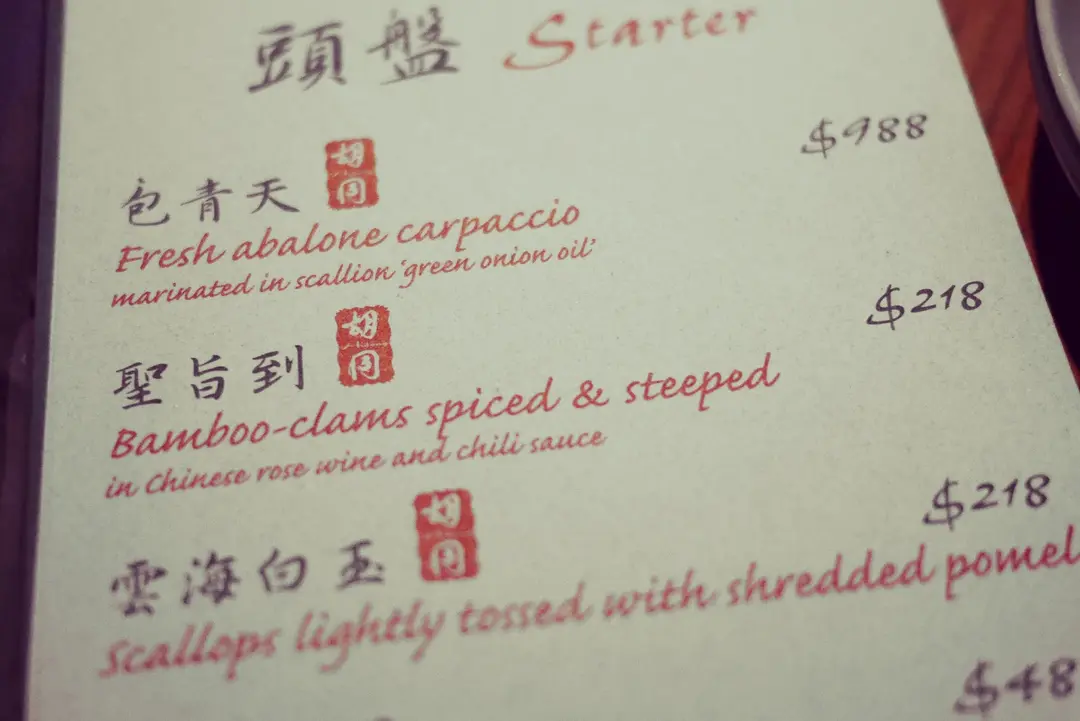 頭盤 Starter
包青天 胡同 $988
Fresh abalone carpaccio
marinated in scallion ‘green onion oil’
聖旨到 胡同 $218
Bamboo-clams spiced & steeped
in Chinese rose wine and chili sauce
雲海白玉 胡同 $218
Scallops lightly tossed with shredded pomel
$48